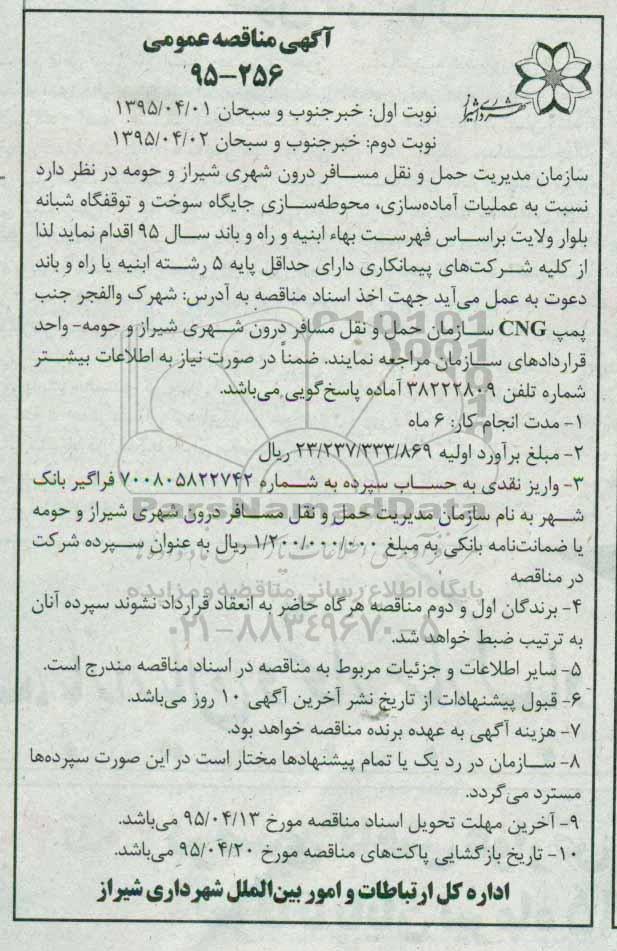 آگهی مناقصه عمومی
۹۵-۲۵۶
شهرداری شیراز
نوبت اول: خبرجنوب و سبحان ۱۳۹۵/۰۴/۰۱
نوبت دوم: خبرجنوب و سبحان ۱۳۹۵/۰۴/۰۲
سازمان مدیریت حمل و نقل مسافر درون شهری شیراز و حومه در نظر دارد
نسبت به عملیات آماده‌سازی، محوطه‌سازی جایگاه سوخت و توقفگاه شبانه
بلوار ولایت براساس فهرست بهاء ابنیه و راه و باند سال ۹۵ اقدام نماید لذا
از کلیه شرکت‌های پیمانکاری دارای حداقل پایه ۵ رشته ابنیه یا راه و باند
دعوت به عمل می‌آید جهت اخذ اسناد مناقصه به آدرس: شهرک والفجر جنب
پمپ CNG سازمان حمل و نقل مسافر درون شهری شیراز و حومه- واحد
قراردادهای سازمان مراجعه نمایند. ضمناً در صورت نیاز به اطلاعات بیشتر
شماره تلفن ۳۸۲۲۲۸۰۹ آماده پاسخ‌گویی می‌باشد.
۱- مدت انجام کار: ۶ ماه
۲- مبلغ برآورد اولیه ۲۳/۲۳۷/۳۳۳/۸۶۹ ریال
۳- واریز نقدی به حساب سپرده به شماره ۷۰۰۸۰۵۸۲۲۷۴۲ فراگیر بانک
شهر به نام سازمان مدیریت حمل و نقل مسافر درون شهری شیراز و حومه
یا ضمانت‌نامه بانکی به مبلغ ۱/۲۰۰/۰۰۰/۰۰۰ ریال به عنوان سپرده شرکت
در مناقصه
۴- برندگان اول و دوم مناقصه هرگاه حاضر به انعقاد قرارداد نشوند سپرده آنان
به ترتیب ضبط خواهد شد.
۵- سایر اطلاعات و جزئیات مربوط به مناقصه در اسناد مناقصه مندرج است.
۶- قبول پیشنهادات از تاریخ نشر آخرین آگهی ۱۰ روز می‌باشد.
۷- هزینه آگهی به عهده برنده مناقصه خواهد بود.
۸- سازمان در رد یک یا تمام پیشنهادها مختار است در این صورت سپرده‌ها
مسترد می‌گردد.
۹- آخرین مهلت تحویل اسناد مناقصه مورخ ۹۵/۰۴/۱۳ می‌باشد.
۱۰- تاریخ بازگشایی پاکت‌های مناقصه مورخ ۹۵/۰۴/۲۰ می‌باشد.
اداره کل ارتباطات و امور بین‌الملل شهرداری شیراز
ParsNamadData
پایگاه اطلاع رسانی مناقصه و مزایده
۰۲۱-۸۸۳۴۹۶۷۰-۵